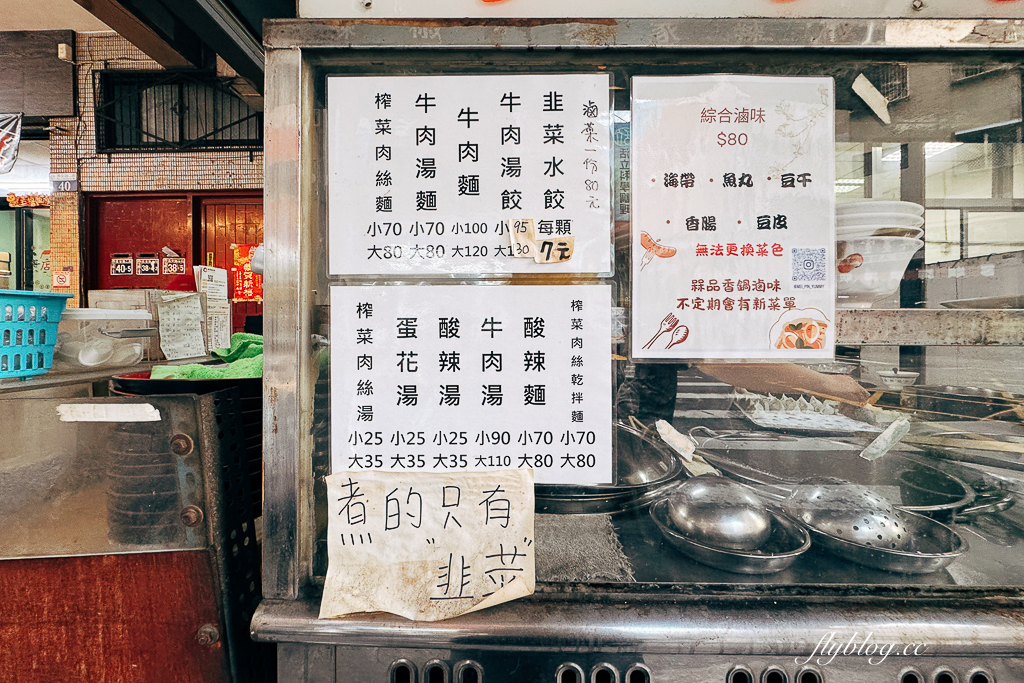 韭菜水餃 每顆 7元
牛肉湯餃 小95 大130
牛肉麵 小100 大120
牛肉湯麵 小70 大80
榨菜肉絲麵 小70 大80
滷藥一份80元
榨菜肉絲乾拌麵 小70 大80
酸辣麵 小70 大80
牛肉湯 小90 大110
酸辣湯 小25 大35
蛋花湯 小25 大35
榨菜肉絲湯 小25 大35
煮的只有
"韭菜"
綜合滷味
$80
·海帶 ·魚丸 ·豆干
·香腸 ·豆皮
無法更換菜色
槑品香鍋滷味
不定期會有新菜單
40
flyblog.cc